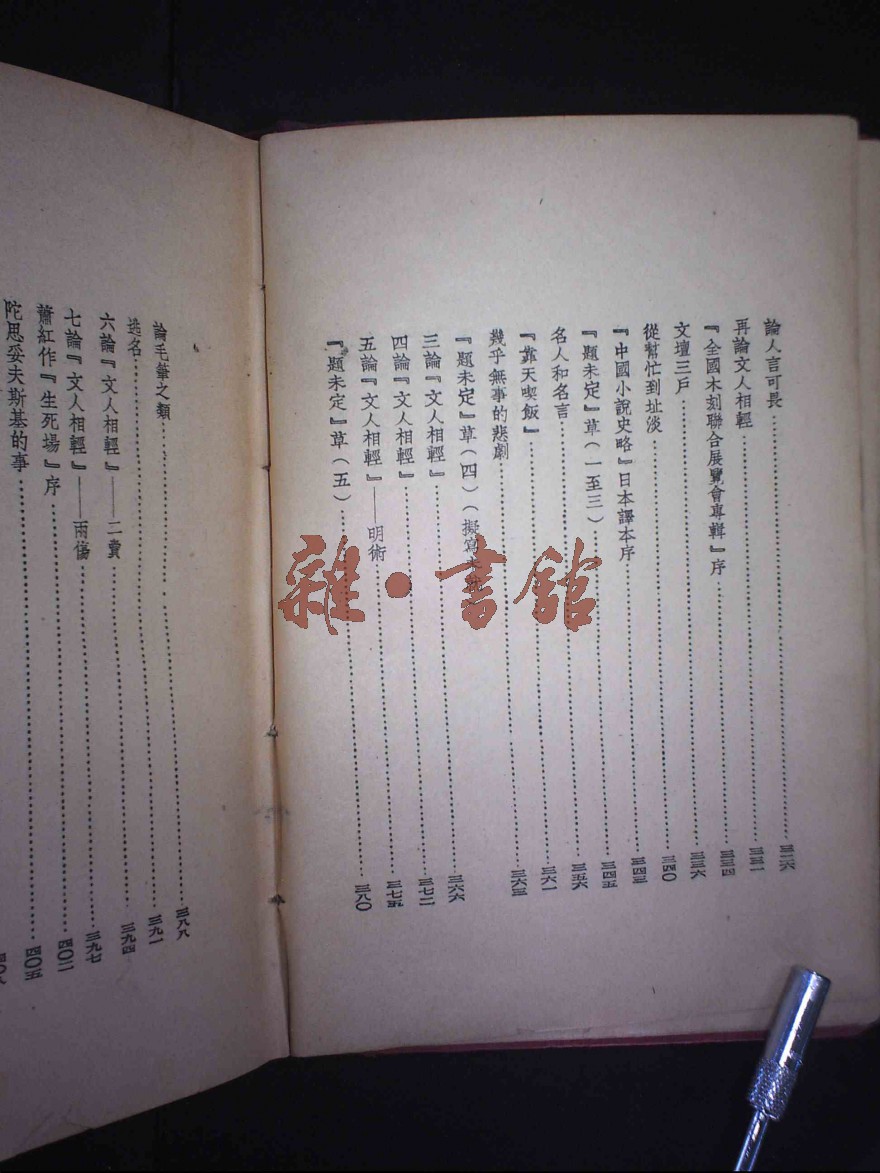 論人言可畏……三二六
再論文人相輕……三三一
『全國木刻聯合展覽會專輯』序……三三四
文壇三戶……三三六
從幫忙到址淡……三四〇
『中國小說史略』日本譯本序……三四三
『題未定』草(一至三)……三四五
名人和名言……三五六
『靠天喫飯』……三六一
幾乎無事的悲劇……三六三
『題未定』草(四)(擬寫未
三論『文人相輕』……三六六
四論『文人相輕』……三七二
五論『文人相輕』——明術……三七五
『題未定』草(五)……三八〇
論毛筆之類……三八八
逃名……三九一
六論『文人相輕』——二賣……三九四
七論『文人相輕』——兩傷……三九七
蕭紅作『生死場』序……四〇二
陀思妥夫斯基的事……四〇五
四〇八
雜·書館